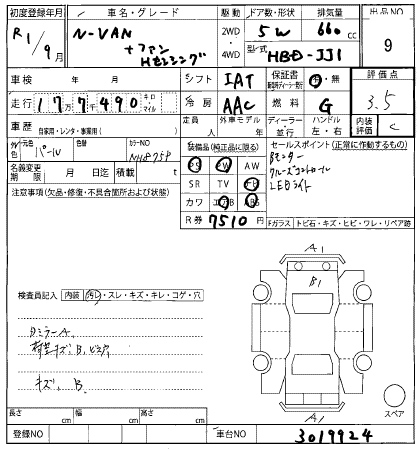 初度登録年月 車名・グレード 駆動 ドア数・形状 排気量 出品NO
R1/9月 N-VAN 2WD 4WD 5W 660cc 9
+ファン
Hセンシング 型式 HBD-JJ1
車検 年 月 シフト IAT 保証書 有・無 評価点
走行 177490 キロ・マイル 冷房 AAC 燃料 G 3.5
車歴 自家用・レンタ・事業用( ) 定員 外車モデル ディーラー・並行 ハンドル 左・右 内装評価 C
外色 元色 パール 色替 カラーNO NH875P 装備品(純正品に限る) セールスポイント(正常に作動するもの)
名義変更期限 月 日迄 積載 t PS PW AW
Bモニター
クルーズコントロール
LEDライト
注意事項(欠品・修復・不具合箇所および状態) SR TV ナビ
カワ エアB ABS
R券 7510円 Fガラス トビ石・キズ・ヒビ・ワレ・リペア跡
検査員記入 内装 汚レ・スレ・キズ・キレ・コゲ・穴
A1
B1
Dミラー A.
荷室キズ、B、ビス穴
キズ、B.
A1
スペア
長さ cm 幅 cm 高さ cm
登録NO 車台NO 3019924